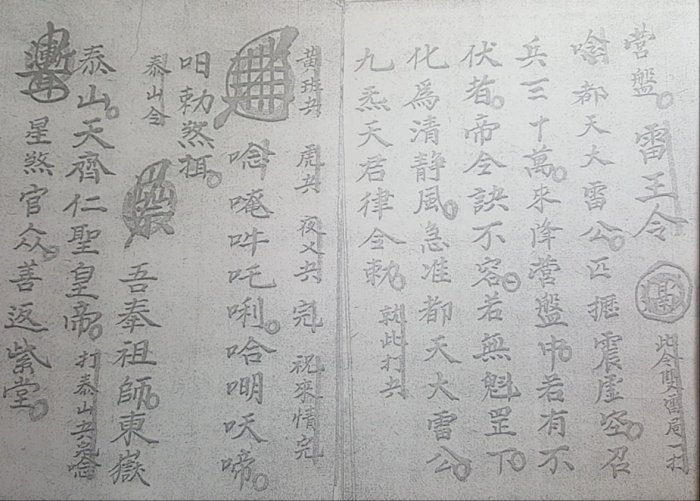 营盤。雷王令 此令雙雷局一打
唅都天大雷公。匹震虚空。召
兵三十萬。來降营盤中。若有不
伏者。帝令訣不容。若無魁罡下。
化為清静風。急准都天大雷公。
九炁天君律令勅。就此打兵
黄班兵 虎兵 夜乂兵完 祝來情完
唸唵吽吒唎。哈呋啼。
勅煞祖。
泰山令
吾奉祖師東嶽
泰山天齊仁聖皇帝。打泰山兵完唸
星煞官众。善返紫堂。